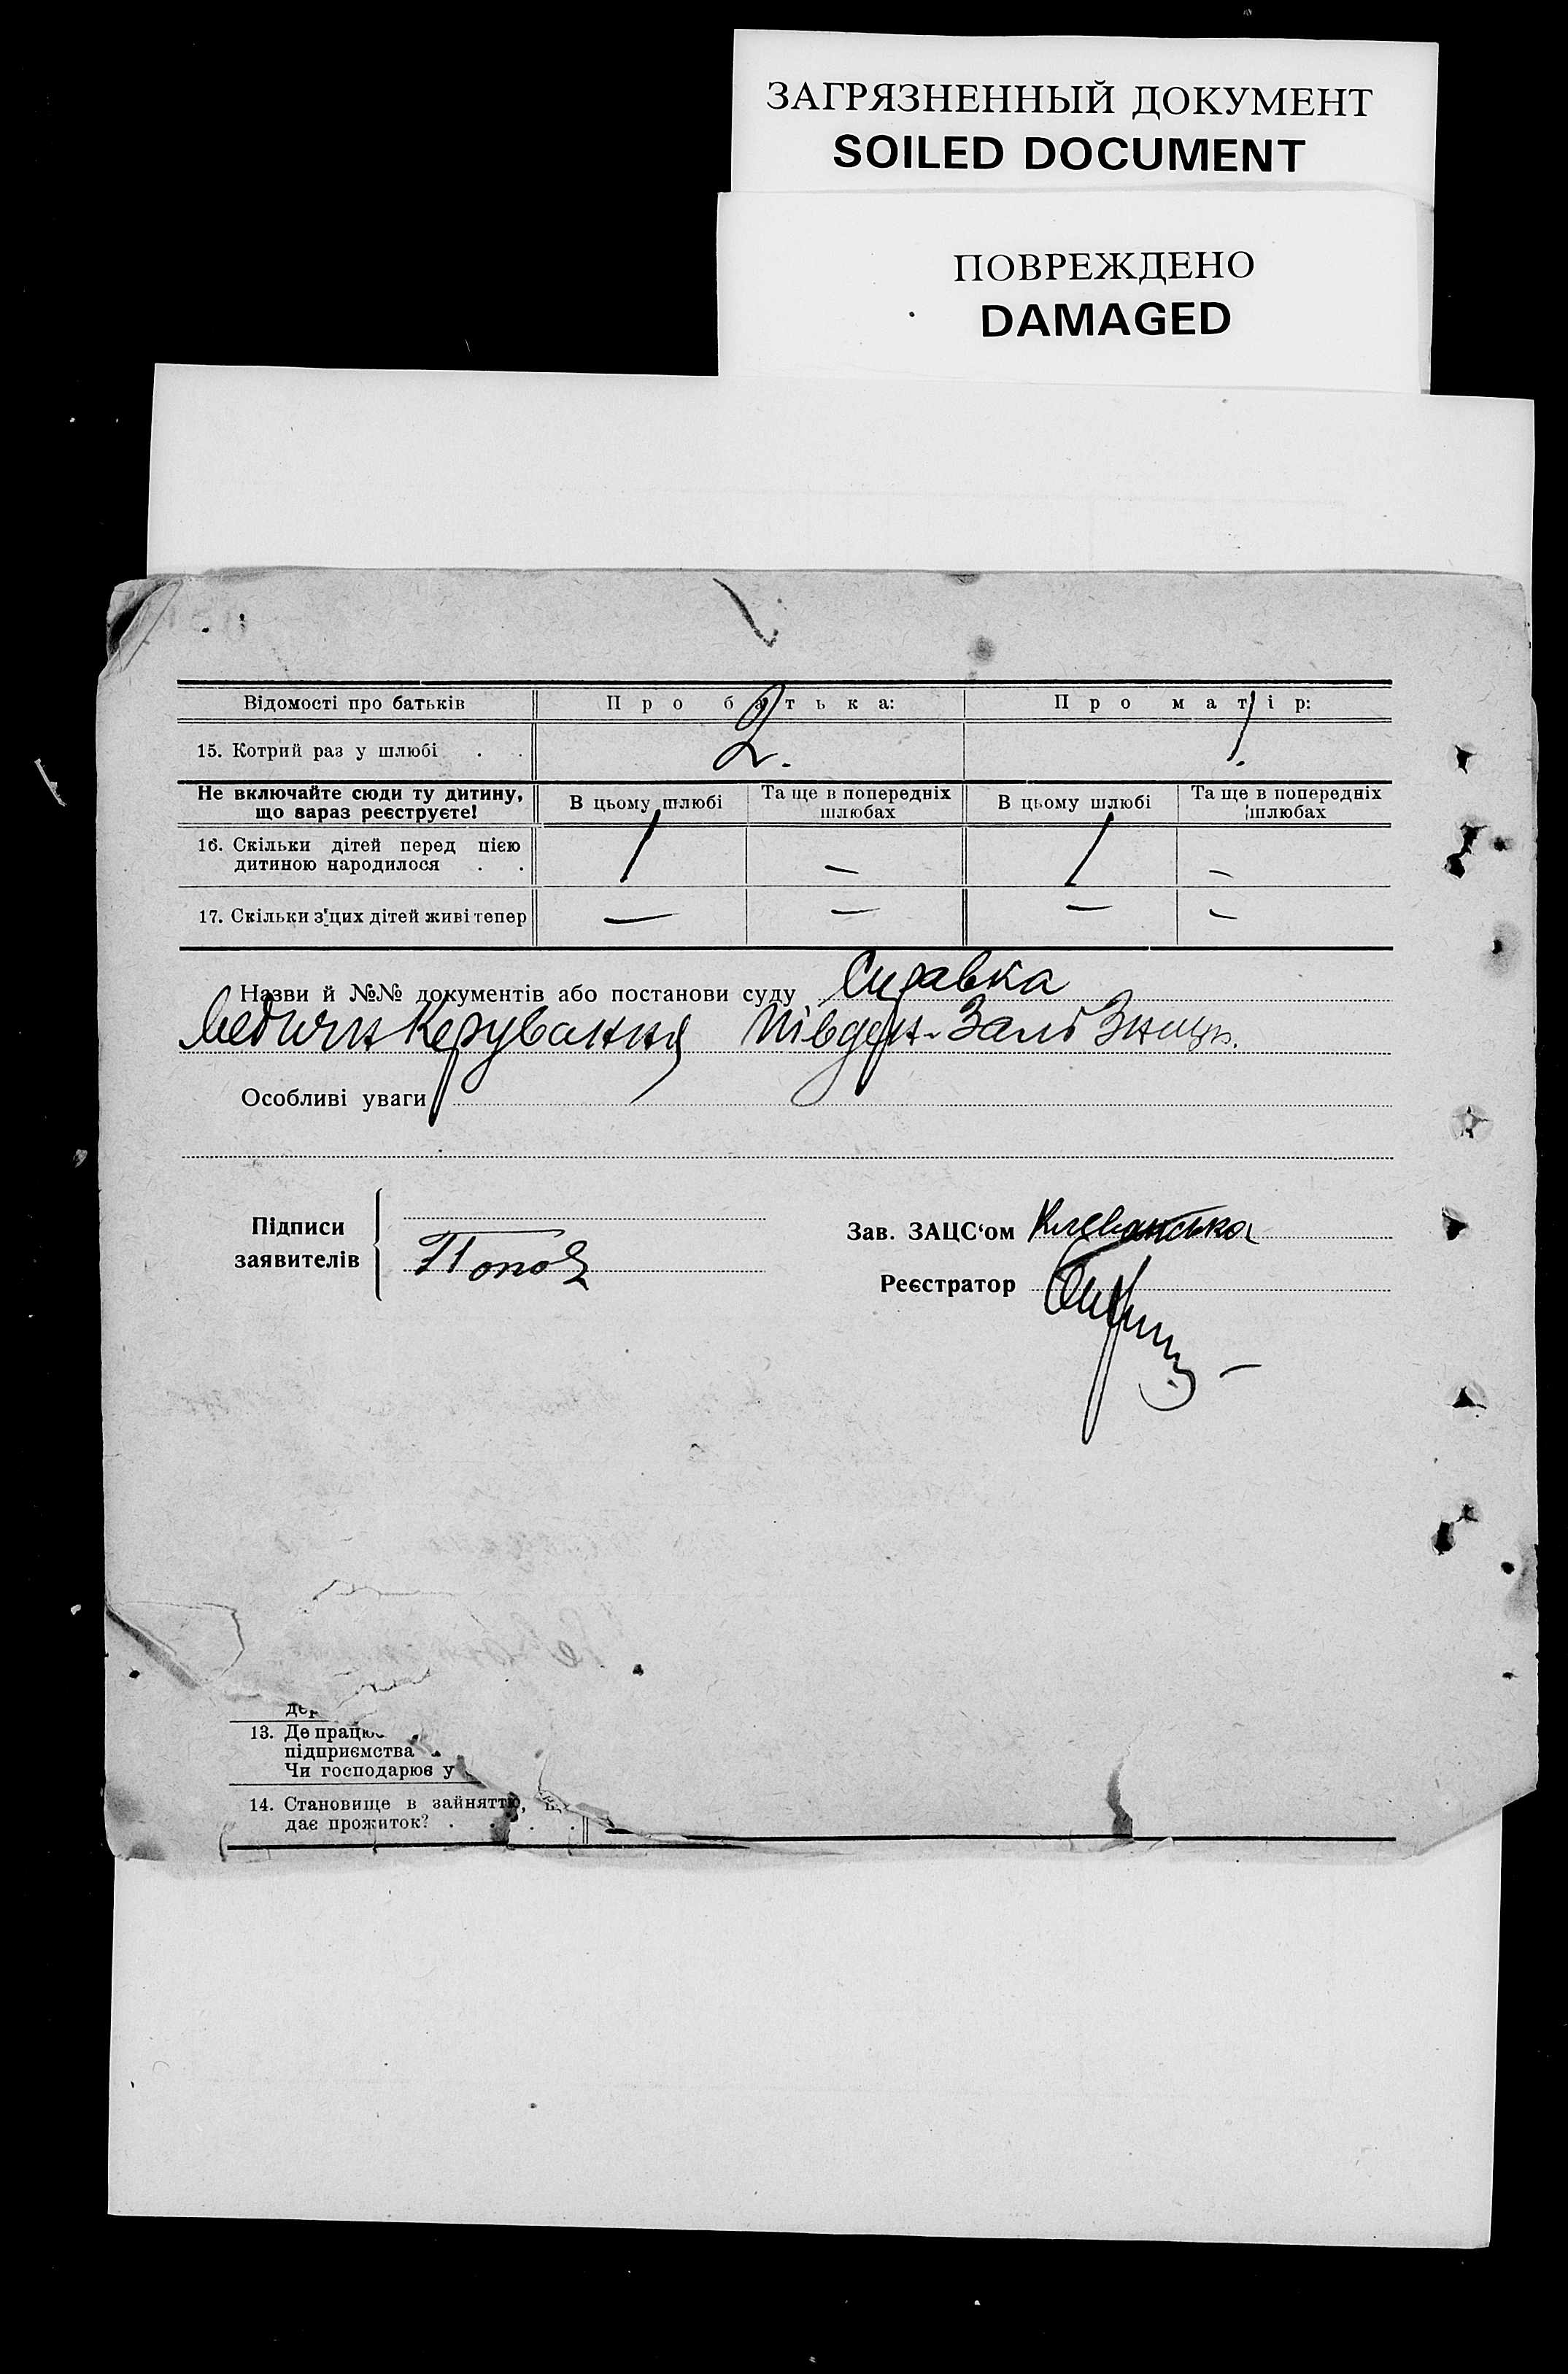 ЗАГРЯЗНЕННЫЙ ДОКУМЕНТ
SOILED DOCUMENT
ПОВРЕЖДЕНО
DAMAGED
Відомості про батьків Про батька: Про матір:
15. Котрий раз у шлюбі . . 2. 1.
Не включайте сюди ту дитину, що зараз реєструєте! В цьому шлюбі Та ще в попередніх шлюбах В цьому шлюбі Та ще в попередніх шлюбах
16. Скільки дітей перед цією
дитиною народилося . . 1 — 1 —
17. Скільки з'цих дітей живі тепер — — — —
Назви й №№ документів або постанови суду Справка
Медичн Керування Південн-Захід
Особливі уваги
Підписи
заявителів
Попов
Зав. ЗАЦС‘ом Клеванська
Реєстратор
дер
13. Де працює
підприємства
Чи господарює у
14. Становище в зайняттю,
дає прожиток? . . . .